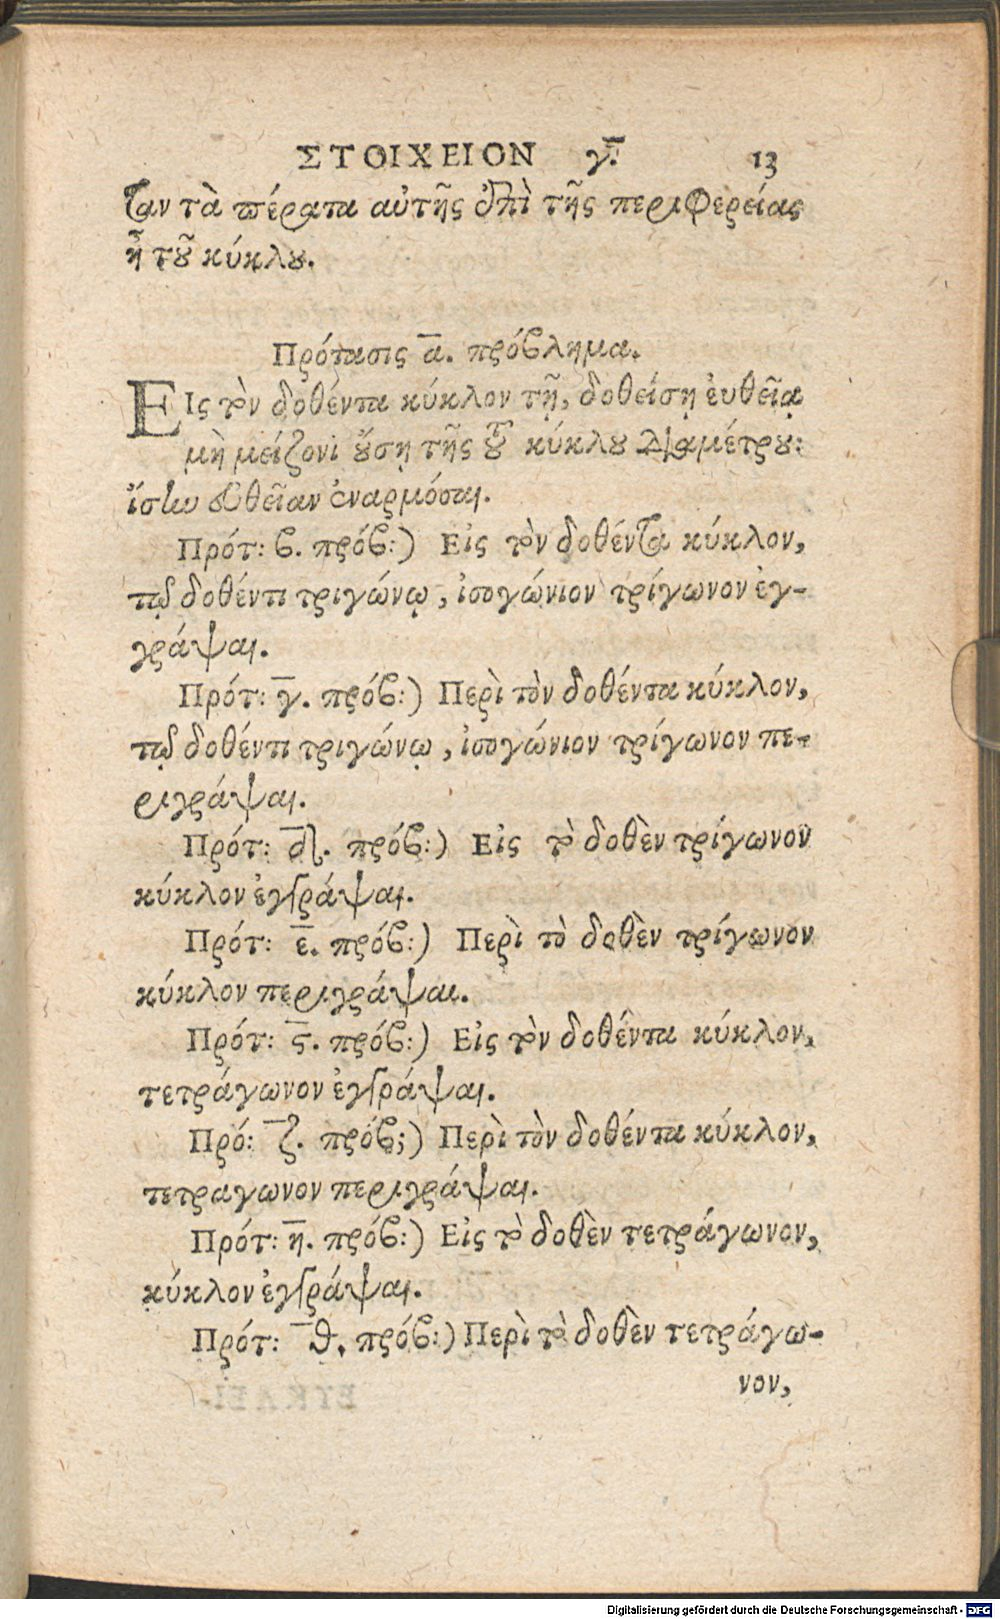 ΣΤΟΙΧΕΙΟΝ γ̅. 13
ταν τὰ πέρατα αὐτῆς ἐπὶ τῆς περιφερείας
ᾖ τοῦ κύκλου.
Πρότασις α̅. πρόβλημα.
ΕΙς τὸν δοθέντα κύκλον τῇ, δοθείσῃ ἐυθεῖᾳ
μὴ μείζονι οὔσῃ τῆς τοῦ κύκλου Διαμέτρου:
ἴσην εὐθεῖαν ἐναρμόσαι.
Πρότ: β. πρόβ:) Εἰς τὸν δοθέντα κύκλον,
τῷ δοθέντι τριγώνῳ, ἰσογώνιον τρίγωνον ἐγ-
γράψαι.
Πρότ: γ̅. πρόβ:) Περὶ τὸν δοθέντα κύκλον,
τῷ δοθέντι τριγώνῳ, ἰσογώνιον τρίγωνον πε-
ριγράψαι.
Πρότ: δ̅. πρόβ:) Εἰς τὸ δοθὲν τρίγωνον
κύκλον ἐγγράψαι.
Πρότ: ε̅. πρόβ:) Περὶ τὸ δοθὲν τρίγωνον
κύκλον περιγράψαι.
Πρότ: ϛ̅. πρόβ:) Εἰς τὸν δοθέντα κύκλον,
τετράγωνον ἐγγράψαι.
Πρό: ζ̅. πρόβ;) Περὶ τὸν δοθέντα κύκλον,
τετραγωνον περιγράψαι.
Πρότ: η̅. πρόβ:) Εἰς τὸ δοθὲν τετράγωνον,
κύκλον ἐγγράψαι.
Πρότ: θ̅. πρόβ:) Περὶ τὸ δοθὲν τετράγω-
νον,
Digitalisierung gefördert durch die Deutsche Forschungsgemeinschaft - DFG